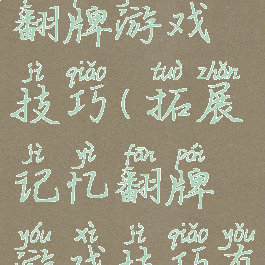 翻牌游戏
jì qiǎo tuò zhǎn
技巧(拓展
jì yì fān pái
记忆翻牌
yóu xì jì qiǎo yǒu
游戏技巧有